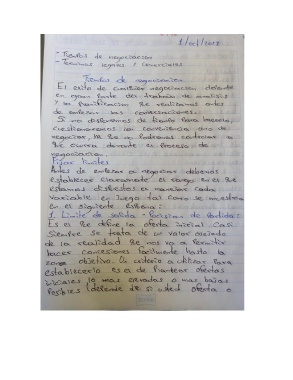 - Técnicas de negociación
- Términos legales y comerciales
Técnicas de negociación
El éxito de cualquier negociación depende
en gran parte del trabajo de análisis
y la planificación que realizamos antes
de empezar las conversaciones.
Si no disponemos de tiempo para hacerlo,
cuestionaremos la conveniencia de
negociar ya que no podremos controlar
que ocurra durante el proceso de
negociación.
Fijar límites
Antes de empezar a negociar debemos
establecer claramente el rango en el que
estamos dispuestos a manejar cada
variable en juego tal como se muestra
en el siguiente
1. Límite de salida - Posición de partida:
Es el que define la oferta inicial. Casi
siempre se trata de un valor alejado
de la realidad que nos va a permitir
hacer concesiones fácilmente hasta la
zona objetivo. Un criterio a utilizar para
establecerlo es el de plantear ofertas
lo más elevadas o más bajas
posibles (depende de si usted oferta o